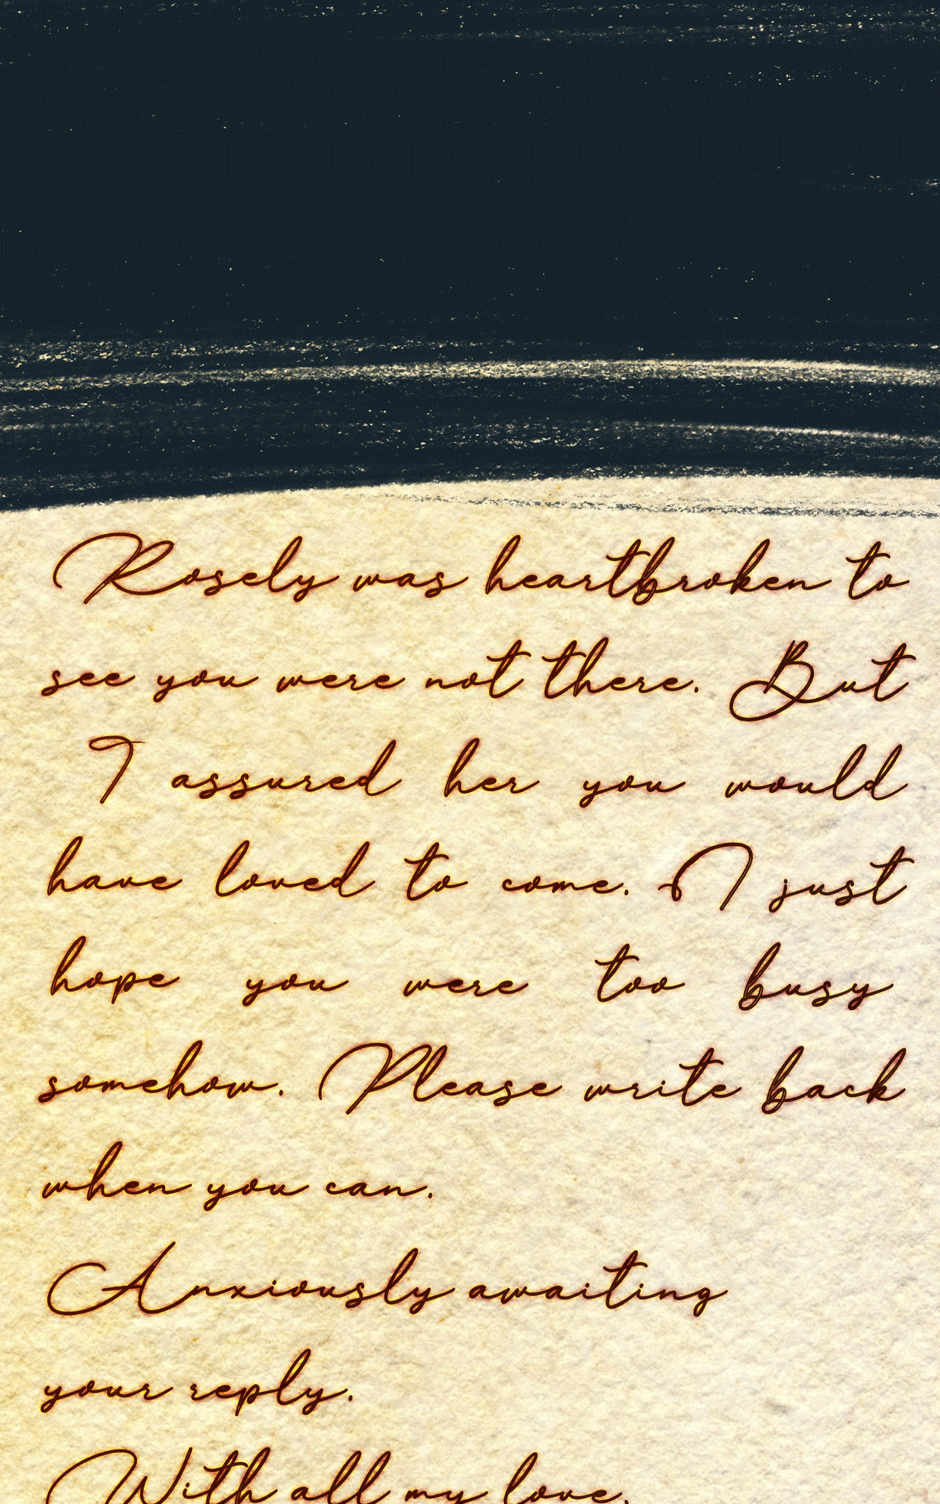 Rosely was heartbroken to
see you were not there. But
I assured her you would
have loved to come. I just
hope you were too busy
somehow. Please write back
when you can.
Anxiously awaiting
your reply.
With all my love,